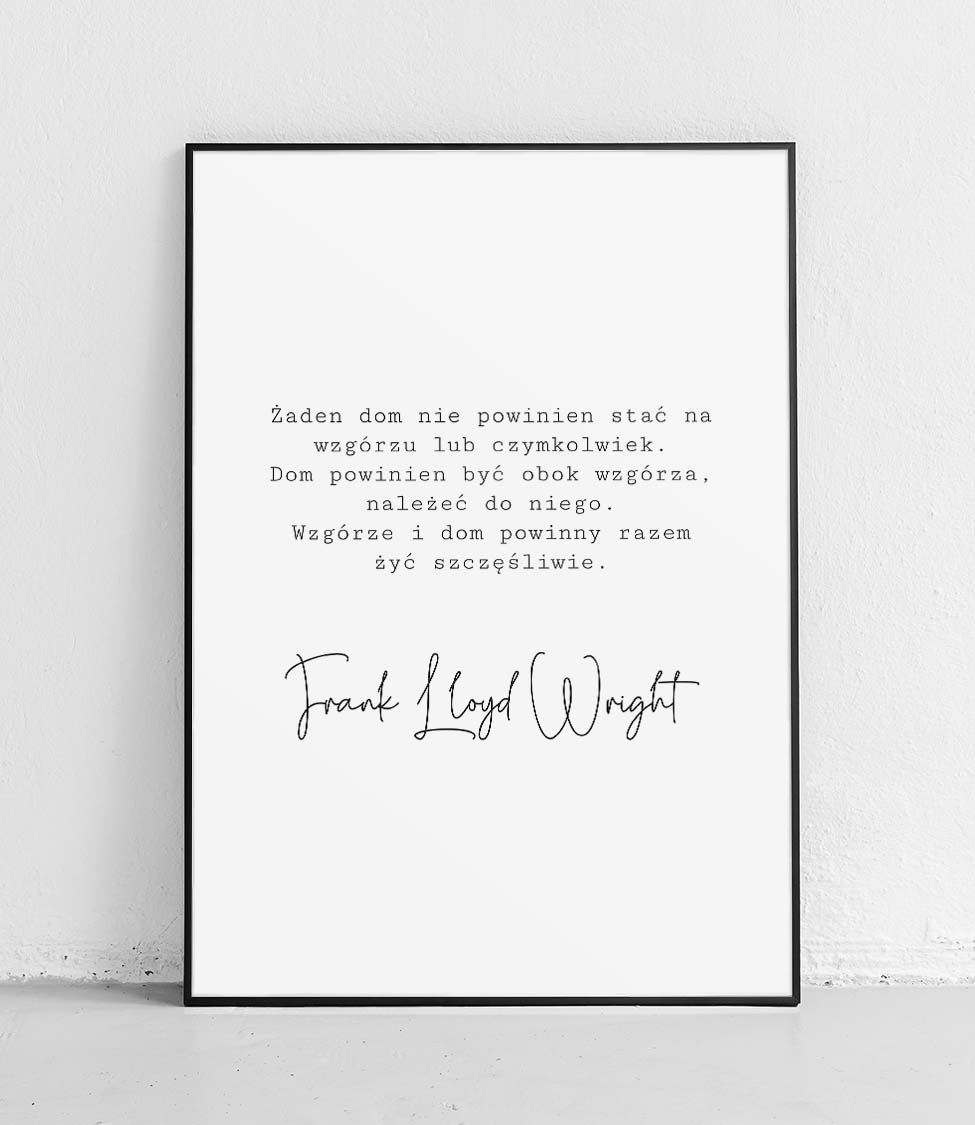 Żaden dom nie powinien stać na
wzgórzu lub czymkolwiek.
Dom powinien być obok wzgórza,
należeć do niego.
Wzgórze i dom powinny razem
żyć szczęśliwie.
Frank Lloyd Wright